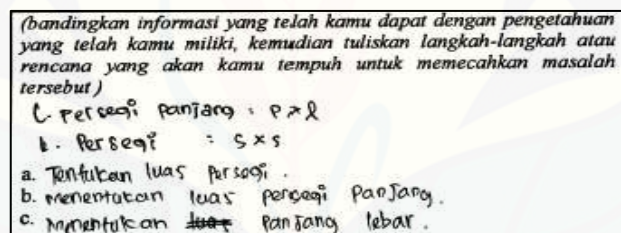 (bandingkan informasi yang telah kamu dapat dengan pengetahuan
yang telah kamu miliki, kemudian tuliskan langkah-langkah atau
rencana yang akan kamu tempuh untuk memecahkan masalah
tersebut)
L. Persegi Panjang : P x l
L. Persegi : s x s
a. Tentukan luas persegi.
b. menentukan luas persegi Panjang.
c. Menentukan Panjang lebar.